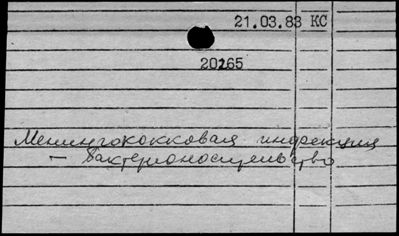 21.03.83 КС
20265
Менингококковая инфекция
– бактерионосительство